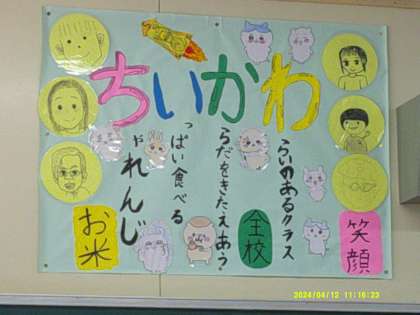 ちいかわ
ゃれんじ
っぱい食べる
らだをきたえあう。
らいのあるクラス
お米
全校
笑顔
2024/04/12 11:16:23